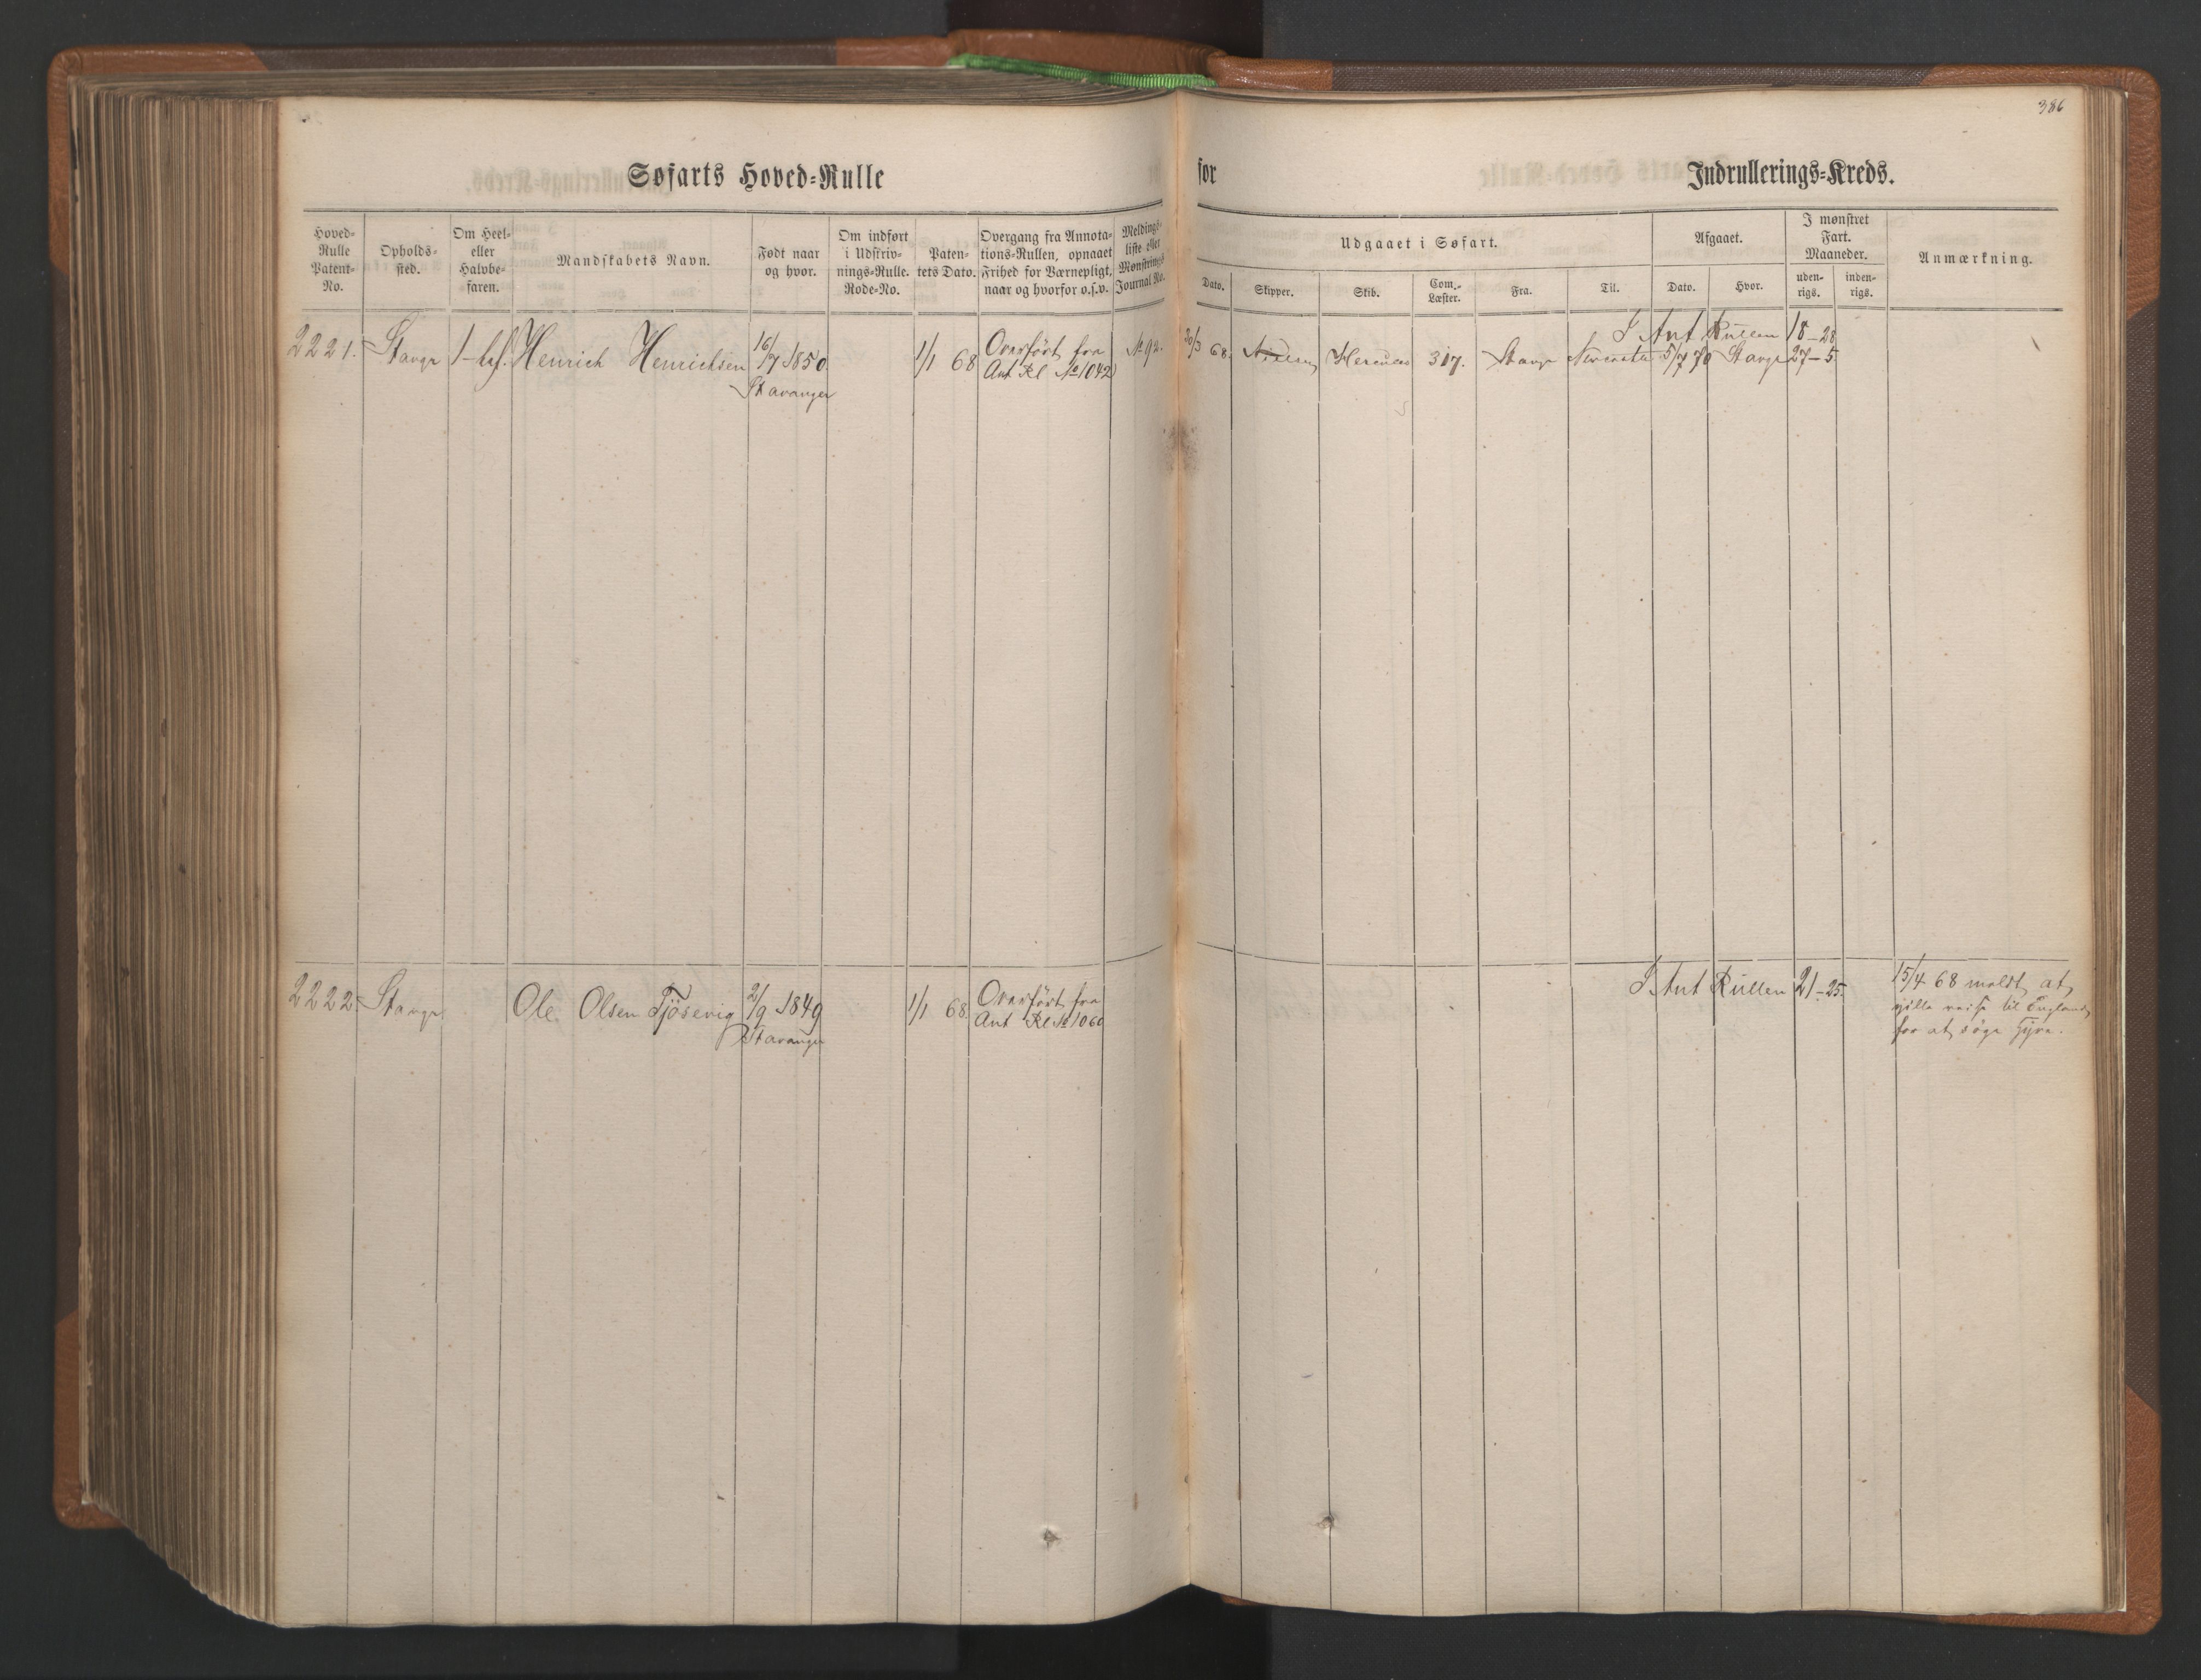 386
Søfarts Hoved-Rulle for Indrullerings-Kreds.
Hoved-Rulle Patent-No.
Opholds-sted.
Om Heel- eller Halvbe-faren.
Mandskabets Navn.
Født naar og hvor.
Om indført i Udskriv-nings-Rulle. Rode-No.
Paten-tets Dato.
Overgang fra Annota-tions-Rullen, opnaaet Frihed for Værnepligt, naar og hvorfor o.s.v.
Meldings-liste eller Mønstrings Journal No.
Udgaaet i Søfart.
Dato.
Skipper.
Skib.
Com.-Læster.
Fra.
Til.
Afgaaet.
Dato.
Hvor.
I mønstret Fart. Maaneder.
uden-rigs.
inden-rigs.
Anmærkning.
I Ant Rullen 18-28
2221. Stavgr Henrich Henrichsen 16/7 1850 1/1 68 Overført fra № 92. 68. Hercules 317. Stavgr 5/7 70 Stavgr 27-5
Stavanger Ant Rl № 1042
2222. Stavgr Ole Olsen Tjøsevig 2/9 1849 1/1 68. Overført fra I Ant Rullen 21-25. 15/4 68 meldt at
Stavanger Ant Rl № 1060 vilde reise til England
for at søge Hyre.